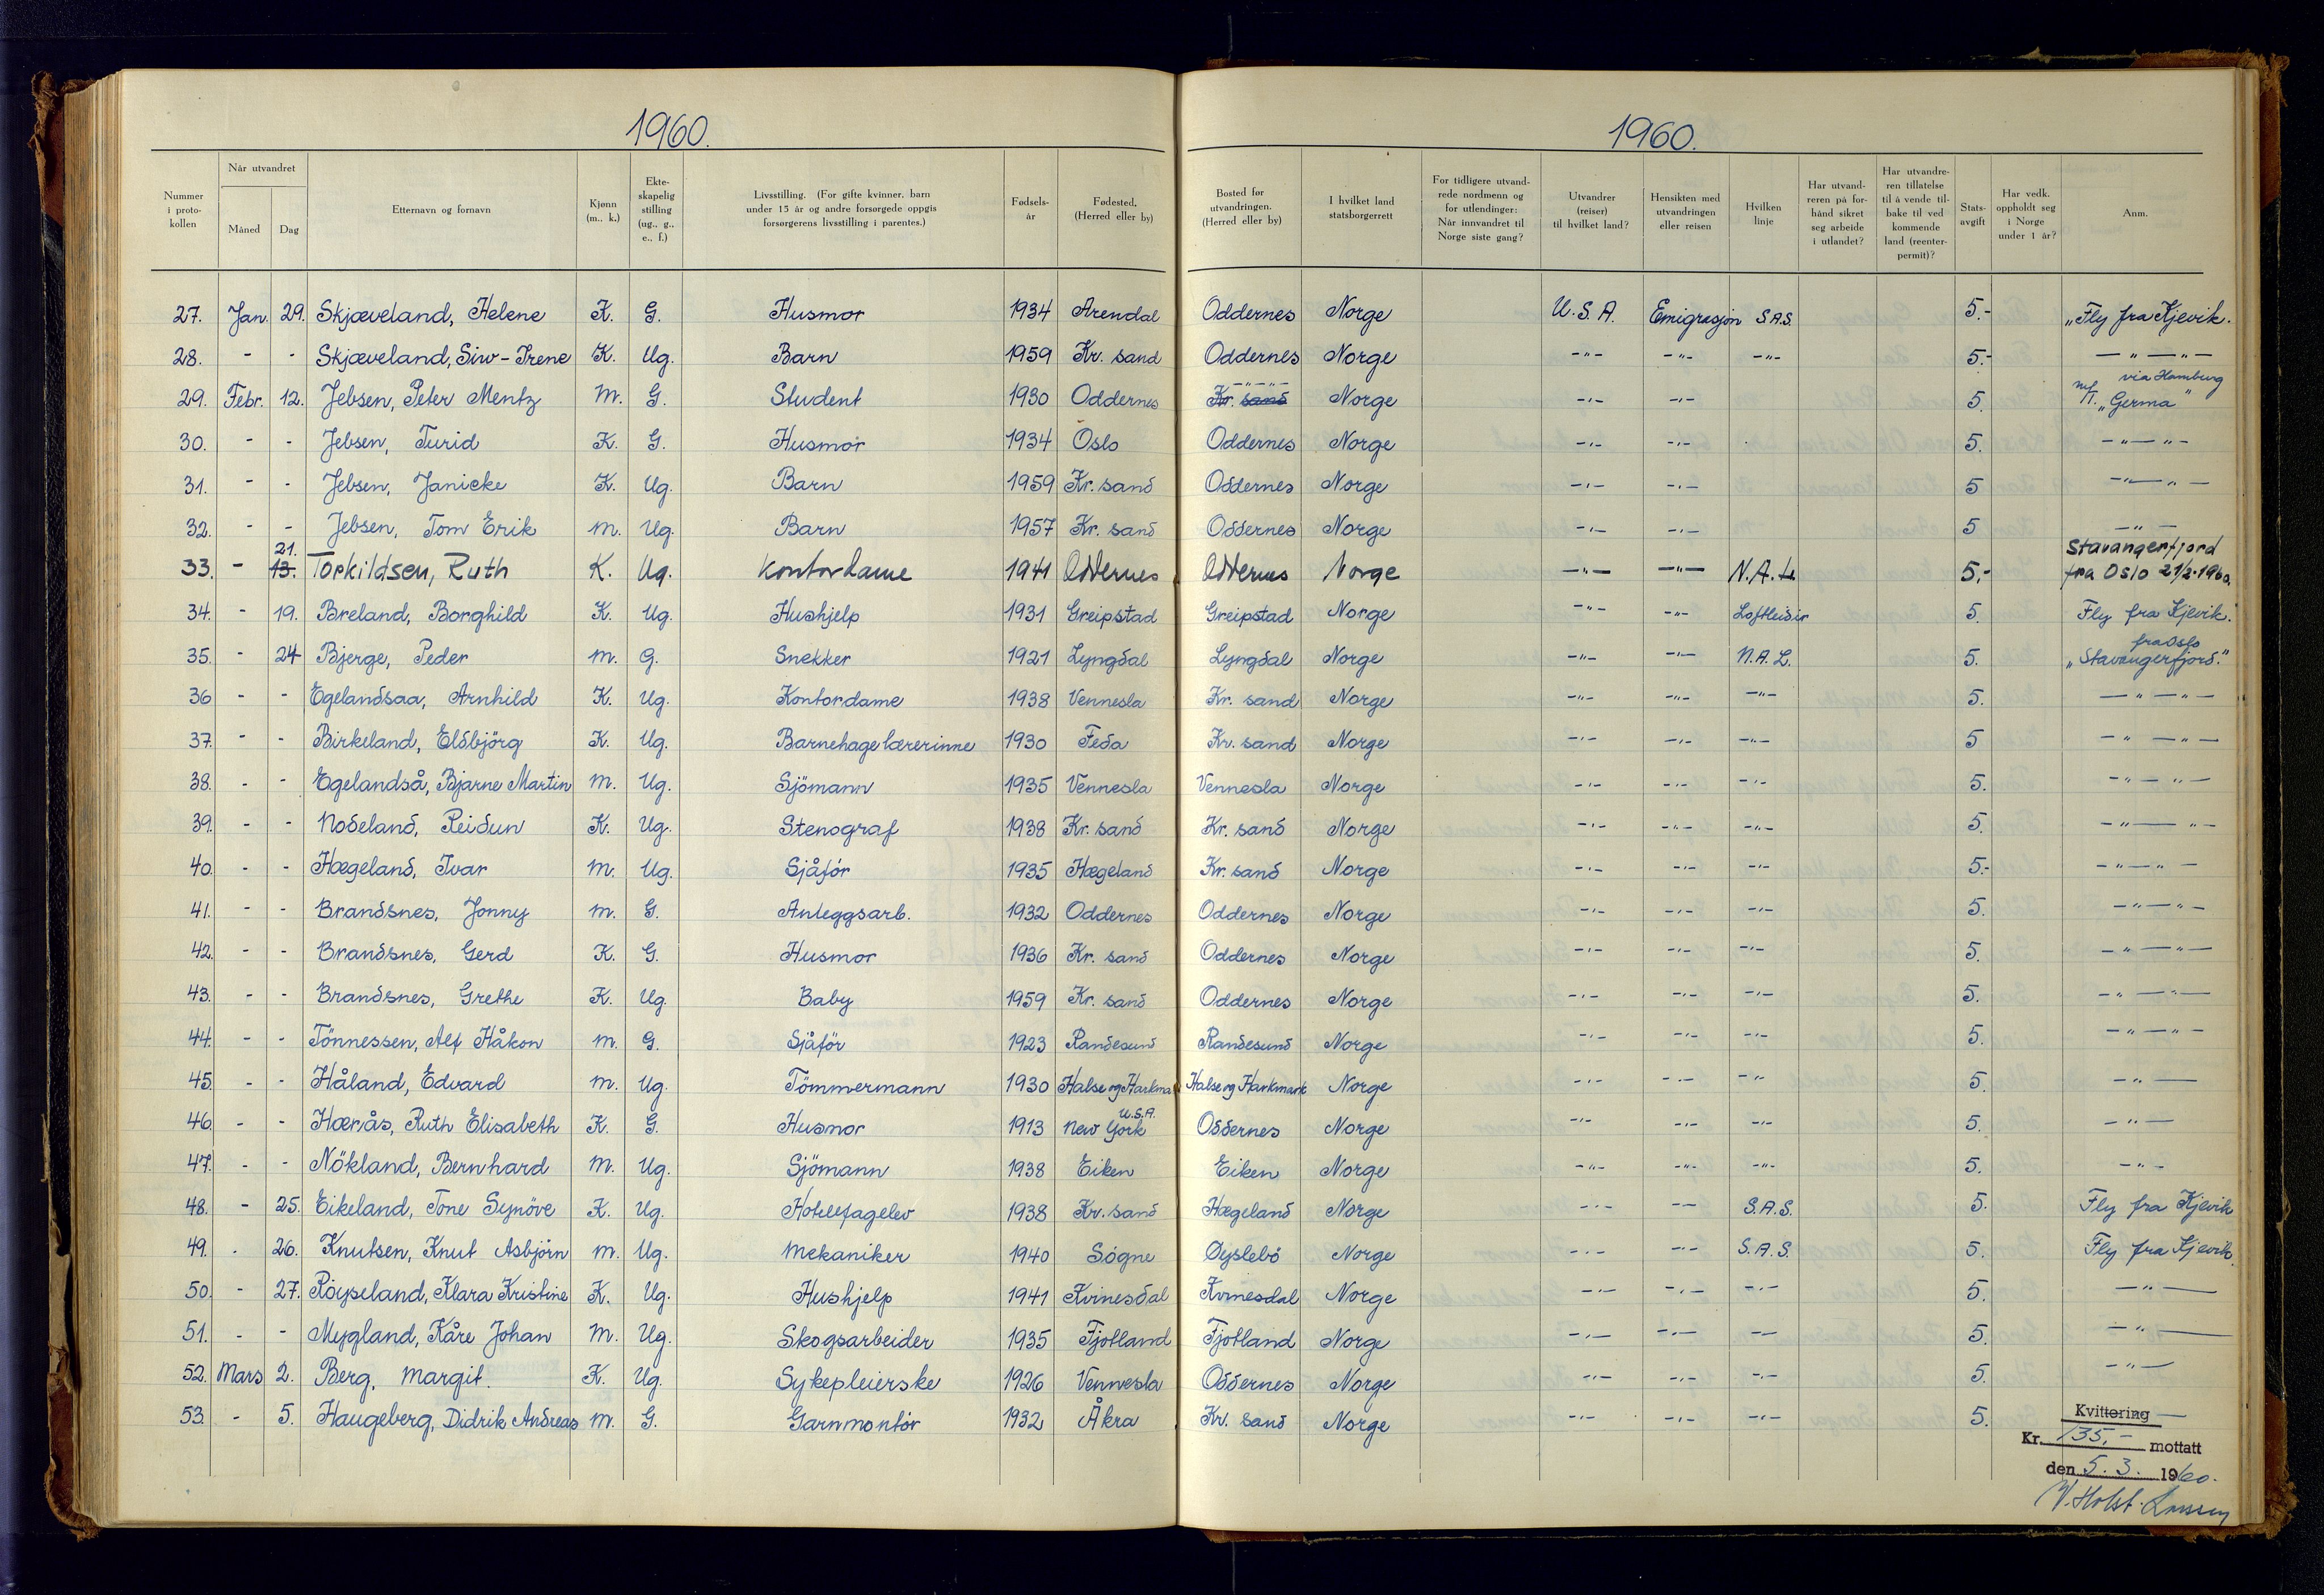 1960.
1960.
Nummer i proto- kollen
Når utvandret
Måned
Dag
Etternavn og fornavn
Kjønn (m., k.)
Ekte- skapelig stilling (ug., g., e., f.)
Livsstilling. (For gifte kvinner, barn under 15 år og andre forsørgede oppgis forsørgerens livsstilling i parentes.)
Fødsels- år
Fødested, (Herred eller by)
Bosted før utvandringen. (Herred eller by)
I hvilket land statsborgerrett
For tidligere utvand- rede nordmenn og for utlendinger: Når innvandret til Norge siste gang?
Utvandrer (reiser) til hvilket land?
Hensikten med utvandringen eller reisen
Hvilken linje
Har utvand- reren på for- hånd sikret seg arbeide i utlandet?
Har utvandre- ren tillatelse til å vende til- bake til ved kommende land (reenter- permit)?
Stats- avgift
Har vedk. oppholdt seg i Norge under 1 år?
Anm.
27. Jan. 29. Skjæveland, Helene K. G. Husmor 1934 Arendal Oddernes Norge U.S.A. Emigrasjon S.A.S. 5.- "Fly fra Kjevik.
28. - - Skjæveland, Siw-Irene K. Ug. Barn 1959 Kr. sand Oddernes Norge -"- -"- -"- 5.- -"-"-
29. Febr. 12. Jebsen, Peter Mentz M. G. Student 1930 Oddernes Kr. sand -"-"- Norge -"- -"- 5. M/T. "Germa" via Hamburg
30. - - Jebsen, Turid K. G. Husmor 1934 Oslo Oddernes Norge -"- -"- 5. -"-"-
31. - - Jebsen, Janicke K. Ug. Barn 1959 Kr. sand Oddernes Norge -"- -"- 5 -"-"-
32. - - Jebsen, Tom Erik M. Ug. Barn 1957 Kr. sand Oddernes Norge -"- -"- 5 -"-
33. - 13. 21. Torkildsen, Ruth K. Ug. Kontordame 1941 Oddernes Oddernes Norge -"- -"- N.A.L. 5,- Stavangerfjord fra Oslo 21/2-1960.
34. - 19. Breland, Borghild K. Ug. Hushjelp 1931 Greipstad Greipstad Norge -"- -"- Loftleidir 5. Fly fra Kjevik.
35. - 24 Bjerge, Peder M. G. Snekker 1921 Lyngdal Lyngdal Norge -"- -"- N.A.L. 5. fra Oslo "Stavangerfjord."
36 - - Egelandsaa, Arnhild K. Ug. Kontordame 1938 Vennesla Kr. sand Norge -"- -"- -"- 5. -"-"-
37. - - Birkeland, Eldbjörg K. Ug. Barnehagelærerinne 1930 Feda Kr. sand Norge -"- -"- -"- 5 -"-"-
38. - - Egelandså, Bjarne Martin M. Ug. Sjömann 1935 Vennesla Vennesla Norge -"- -"- -"- 5. -"-"-
39. - - Nodeland, Reidun K. Ug. Stenograf 1938 Kr. sand Kr. sand Norge -"- -"- -"- 5. -"-"-
40. - - Hægeland, Ivar M. Ug. Sjåför 1935 Hægeland Kr. sand Norge -"- -"- -"- 5.- -"-"-
41. - - Brandsnes, Jonny M. G. Anleggsarb. 1932 Oddernes Oddernes Norge -"- -"- -"- 5. -"-"-
42. - - Brandsnes, Gerd K. G. Husmor 1936 Kr. sand Oddernes Norge -"- -"- -"- 5. -"-"-
43. - - Brandsnes, Grethe K. Ug. Baby 1959 Kr. sand Oddernes Norge -"- -"- -"- 5. -"-"-
44. - - Tönnessen, Alf Håkon M. G. Sjåför 1923 Randesund Randesund Norge -"- -"- -"- 5. -"-"-
45. - - Håland, Edvard M. Ug. Tömmermann 1930 Halse og Harkma Halse og Harkmark Norge -"- -"- -"- 5. -"-
46. - - Hærås, Ruth Elisabeth K. G. Husmor 1913 New York U.S.A. Oddernes Norge -"- -"- -"- 5. -"-
47. - - Nökland, Bernhard M. Ug. Sjömann 1938 Eiken Eiken Norge -"- -"- -"- 5. -"-
48. - 25. Eikeland, Tone Synöve K. Ug. Hotellfagelev 1938 Kr. sand Hægeland Norge -"- -"- S.A.S. 5. Fly fra Kjevik
49. - 26. Knutsen, Knut Asbjörn M. Ug. Mekaniker 1940 Sögne Øyslebö Norge -"- -"- S.A.S. 5. Fly fra Kjevik.
50. - 27. Röyseland, Klara Kristine K. Ug. Hushjelp 1941 Kvinesdal Kvinesdal Norge -"- -"- -"- 5. -"-
51. - - Mygland, Kåre Johan M. Ug. Skogsarbeider 1935 Fjotland Fjotland Norge -"- -"- -"- 5. -"-
52. Mars 2. Berg, Margit. K. Ug. Sykepleierske 1926 Vennesla Oddernes Norge -"- -"- -"- 5. -"-
53. - 5. Haugeberg, Didrik Andreas M. G. Garnmontör 1932 Åkra Kr. sand Norge -"- -"- -"- 5.
Kvittering
Kr. 135,- mottatt
den 5. 3. 1960.
W. Holst-Larsen